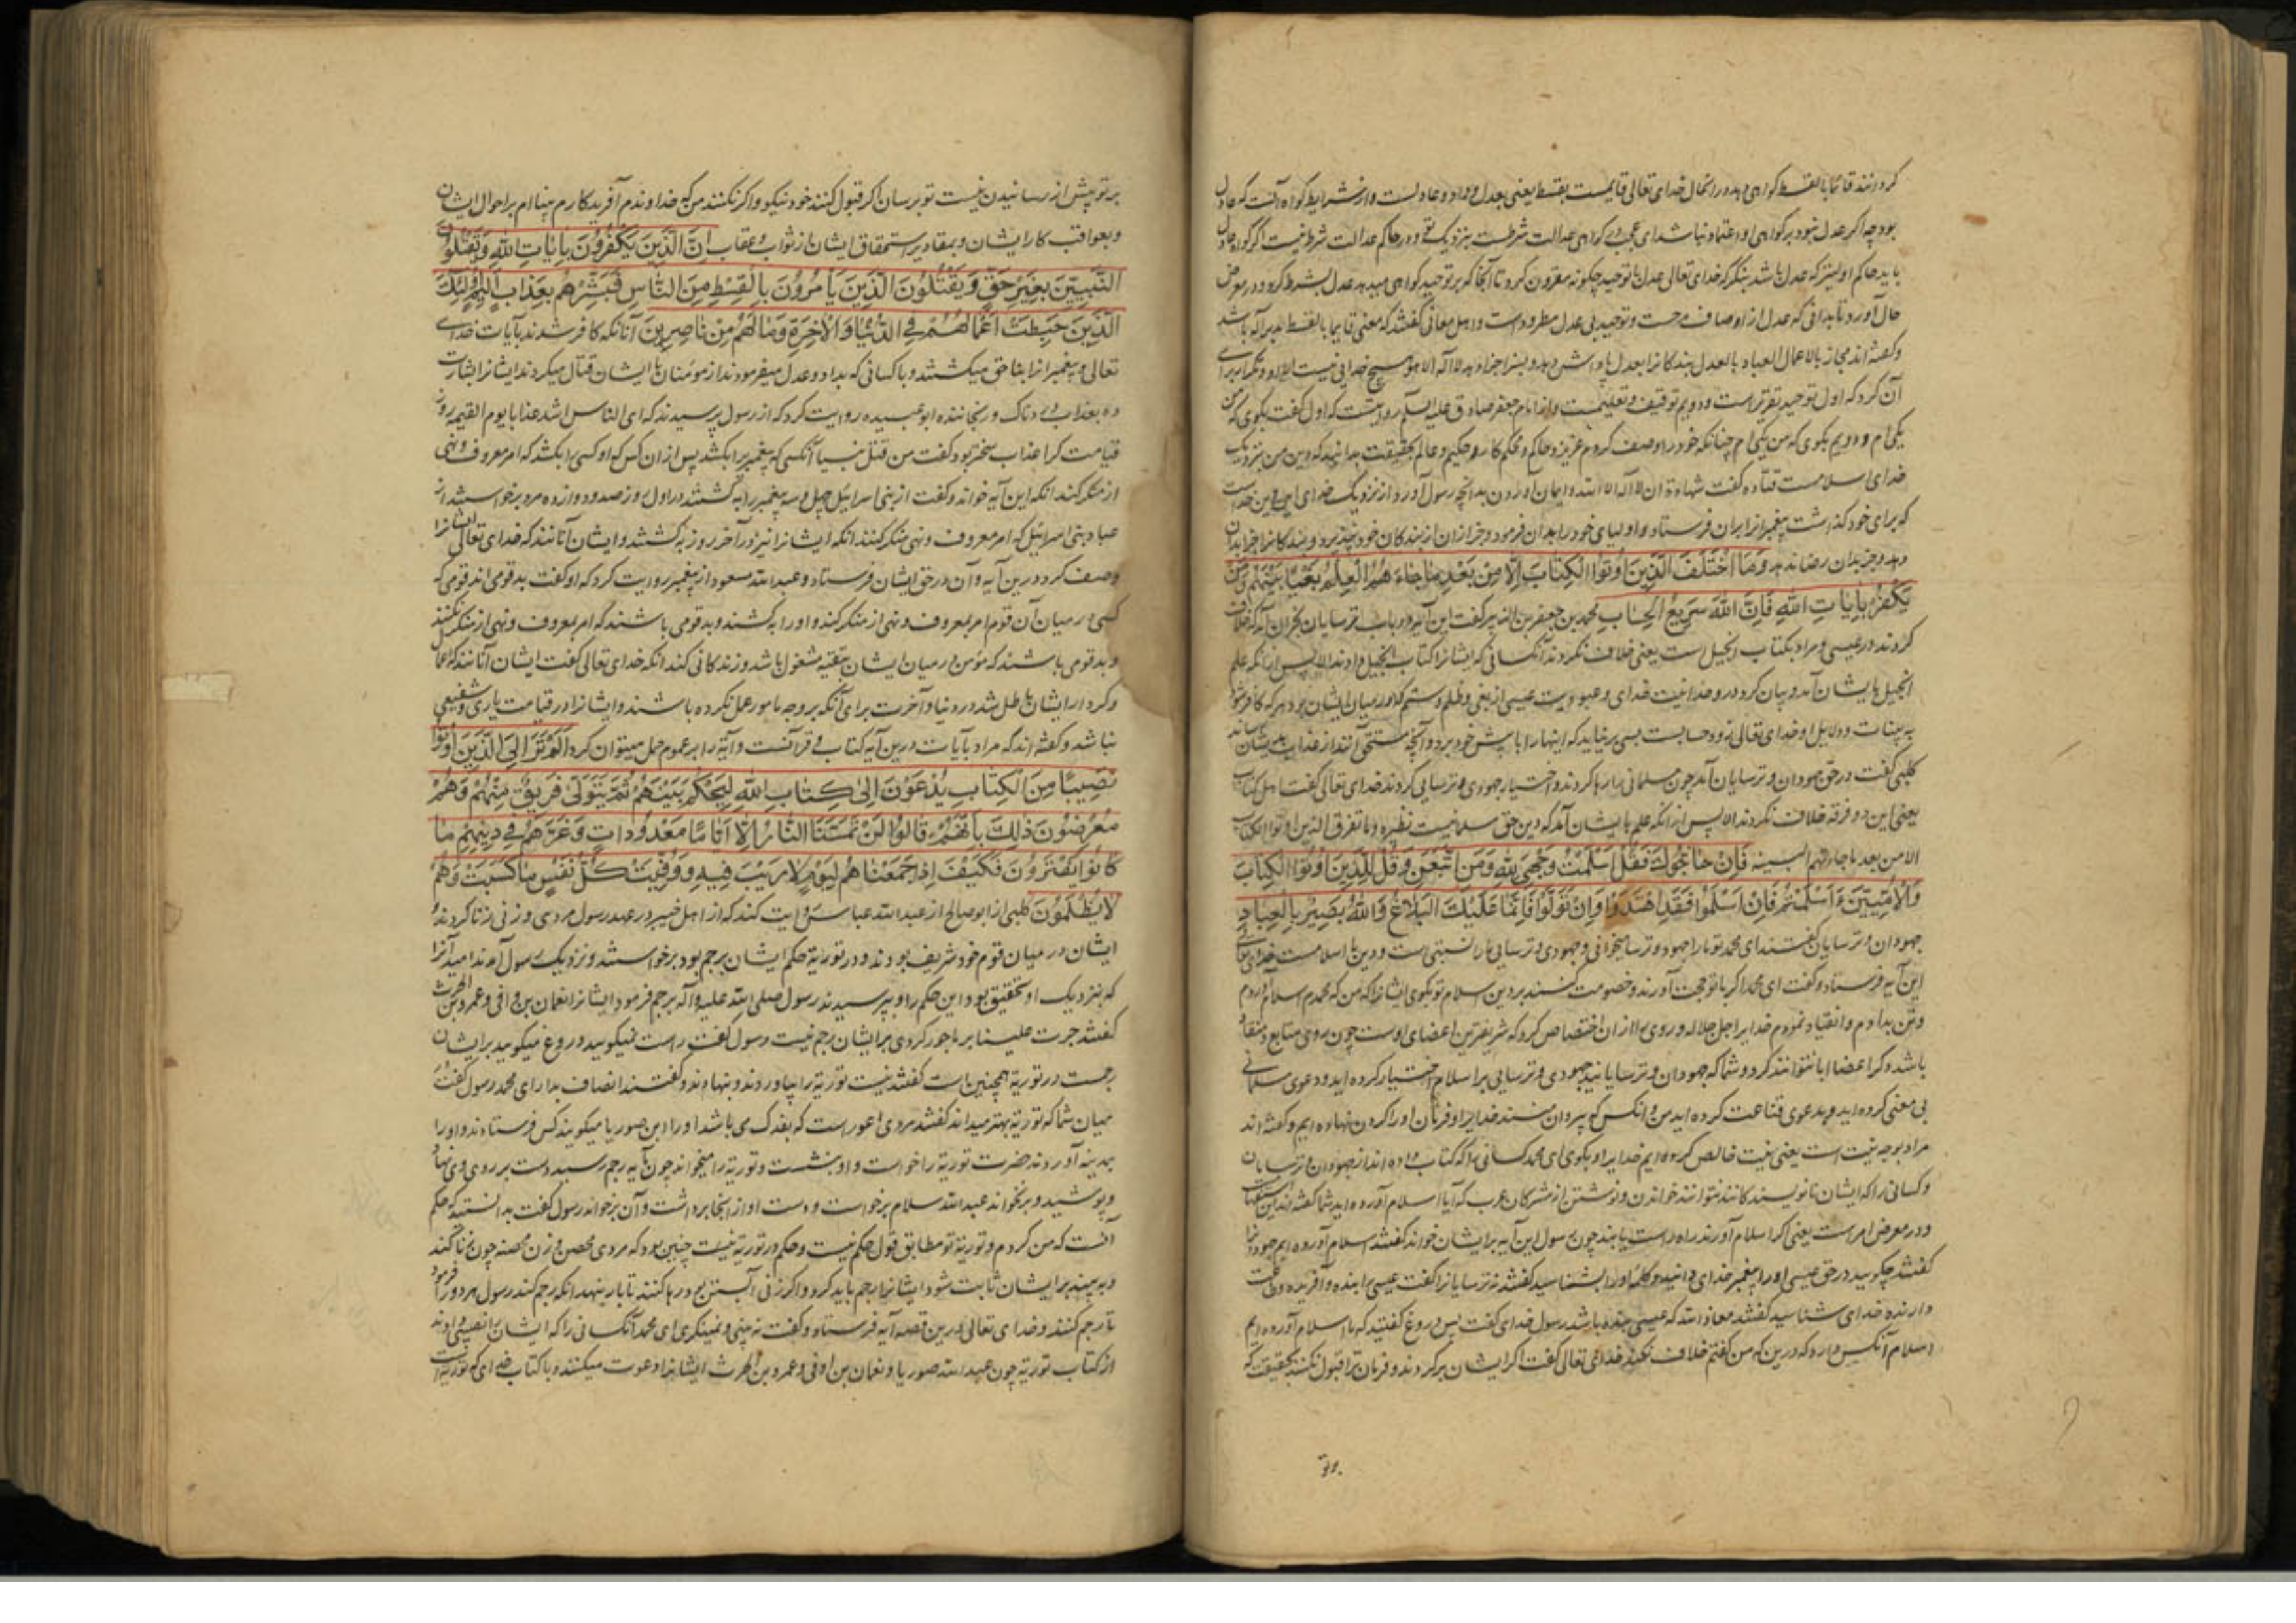 کردانند قائما بالقسط کواهی دهد در انحال خدای تعالی قایمست بقسط یعنی بعدل و داد و عادلست و از شرایط کواه آنست که عادل
بود چه اکر عدل نبود بر کواهی او اعتماد نباشد ای عجب در کواهی عدالت شرطست بنزدیک و در حاکم عدالت شرط نیست اکر کواه عادل
باید حاکم اولیتر که عدل باشد بنگر که خدای تعالی عدل با توحید چکونه مقرون کرد تا آنجا که بر توحید کواهی میدهد عدل بشرط کرد و در معرض
حال آورد تا بدانی که عدل از اوصاف مدحست و توحید بی عدل مطرود است و اهل معانی کفتند که معنی قایما بالقسط
وکفته اند مجاز بالاعمال العباد بالعدل بندکانرا بعدل پاداش دهد و بسزا جزا دهد لا اله الا هو هیچ خدائی نیست الا او و تکرار برای
آن کرد که اول توحید تقریرست و دویم توقیف و تعلیمست و از امام جعفر صادق علیه السلم روایتست که اول کفت بکوی که من
یکی ام و دویم بکوی که من یکی ام چنانکه خود را وصف کردم عزیز و حاکم و محکم کار و حکیم و عالم بحقیقت بدانید که دین من بنزدیک
خدای اسلامست قتاده کفت شهادة ان لا اله الا الله و ایمان آوردن بدانچه رسول آورد از نزدیک خدای این دین خداست
که برای خود کذاشت پیغمبرانرا بران فرستاد و اولیای خود را بدان فرمود و جز ازان از بندکان خود نپذیرد و بندکانرا جزا بدان
دهد و جز بدان رضا ندهد وَمَا اخْتَلَفَ الَّذِينَ أُوتُوا الْكِتَابَ إِلَّا مِنْ بَعْدِ مَا جَاءَهُمُ الْعِلْمُ بَغْيًا بَيْنَهُمْ وَمَنْ
يَكْفُرْ بِآيَاتِ اللهِ فَإِنَّ اللهَ سَرِيعُ الْحِسَابِ محمد بن جعفر بن الزبیر کفت این آیه در باب ترسایان نجران آمد که خلاف
کردند در عیسی و مراد بکتاب انجیل است یعنی خلاف نکردند آنکسانی که ایشانرا کتاب انجیل دادند الا پس از انکه علم
انجیل بایشان آمد و بیان کرد در وحدانیت خدای و عبودیت عیسی از بغی و ظلم و ستم که در میان ایشان بود هر که کافر شود
به بینات و دلایل او خدای تعالی زود حسابست بسی برنیاید که اینها را با پیش خود برد و آنچه مستحق آنند از عذاب بدیشان رساند
کلبی کفت در حق جهودان و ترسایان آمد چون مسلمانی رها کردند و اختیار جهودی و ترسایی کردند خدای تعالی کفت اهل کتاب
یعنی این دو فرقه خلاف نکردند الا پس از انکه علم بایشان آمد که دین حق اسلامیست نظیره وما تفرق الذین اوتوا الکتاب
الا من بعد ما جاءتهم البینه فَإِنْ حَاجُّوكَ فَقُلْ أَسْلَمْتُ وَجْهِيَ لِلَّهِ وَمَنِ اتَّبَعَنِ وَقُلْ لِلَّذِينَ أُوتُوا الْكِتَابَ
وَالْأُمِّيِّينَ ءَأَسْلَمْتُمْ فَإِنْ أَسْلَمُوا فَقَدِ اهْتَدَوْا وَإِنْ تَوَلَّوْا فَإِنَّمَا عَلَيْكَ الْبَلَاغُ وَاللهُ بَصِيرٌ بِالْعِبَادِ
جهودان و ترسایان کفتند ای محمد تو ما را جهود و ترسا میخوانی و جهودی و ترسایی ما را نسبتی است و دین ما اسلامست خدای تعالی
این آیه فرستاد و کفت ای محمد اکر با تو حجت آورند و خصومت کنند بر دین اسلام تو بکوی ایشانرا که من که محمدم اسلام آوردم
وتن بدادم و انقیاد نمودم خدایرا جل جلاله و روی را ازان اختصاص کرد که شریفترین اعضای اوست چون روی متابع و منقاد
باشد دکر اعضا ابا نتوانند کرد و شما که جهودان و ترسایانید جهودی و ترسایی بر اسلام اختیار کرده اید و دعوی مسلمانی
بی معنی کرده اید و بدعوی قناعت کرده اید من و انکس که پیروان منند خدایرا و فرمان او را کردن نهاده ایم و کفته اند
مراد بوجه نیت است یعنی نیت خالص کرده ایم خدایرا و بکوی ای محمد کسانی را که کتاب داده اند از جهودان و ترسایان
وکسانی را که ایشان نانویسندکانند نتوانند خواندن و نوشتن از مشرکان عرب که آیا اسلام آورده اید شما کفته اند این استفهام
ودر معرض امرست یعنی اکر اسلام آورند راه راست یابند چون رسول این آیه بر ایشان خواند کفتند اسلام آورده ایم جهودانرا
کفتند چکویید در حق عیسی او را پیغمبر خدای دانید و کلمه او را بشناسید کفتند نه ترسایانرا کفت عیسی را بنده و آفریده
دارنده خدای شناسید کفتند معاذ الله که عیسی بنده باشد رسول خدای کفت پس دروغ کفتید که ما اسلام آورده ایم
اسلام آنکس دارد که درین که من کفتم خلاف نکند خدای تعالی کفت اکر ایشان برکردند و فرمان ترا قبول نکنند بحقیقت که
بر تو
بر تو پیش از رسانیدن نیست تو برسان اکر قبول کنند خود نیکو و اکر نکنند من که خداوندم آفریدکارم بینا ام بر احوال ایشان
وبعواقب کار ایشان و بمقادیر استحقاق ایشان از ثواب و عقاب إِنَّ الَّذِينَ يَكْفُرُونَ بِآيَاتِ اللهِ وَيَقْتُلُونَ
النَّبِيِّينَ بِغَيْرِ حَقٍّ وَيَقْتُلُونَ الَّذِينَ يَأْمُرُونَ بِالْقِسْطِ مِنَ النَّاسِ فَبَشِّرْهُمْ بِعَذَابٍ أَلِيمٍ أُولَئِكَ
الَّذِينَ حَبِطَتْ أَعْمَالُهُمْ فِي الدُّنْيَا وَالْآخِرَةِ وَمَا لَهُمْ مِنْ نَاصِرِينَ آنانکه کافر شدند بآیات خدای
تعالی و پیغمبرانرا بناحق میکشتند و با کسانی که بداد و عدل میفرمودند از مومنان با ایشان قتال میکردند ایشانرا بشارت
ده بعذاب دردناک و رنجاننده ابو عبیده روایت کرد که از رسول پرسیدند که ای الناس اشد عذابا یوم القیمه روز
قیامت کرا عذاب سختر بود کفت من قتل نبیا آنکسی که پیغمبری را بکشد پس از ان کس که او کسی را بکشد که امر معروف و نهی
از منکر کند انکه این آیه خواند و کفت از بنی اسرائیل چهل و سه پیغمبر را بکشتند در اول روز صد و دوازده مرد برخواستند از
عباد بنی اسرائیل که امر معروف و نهی منکر کنند انکه ایشانرا نیز در آخر روز بکشتند و ایشان آنانند که خدای تعالی ایشانرا
وصف کرد درین آیه و آن در حق ایشان فرستاد و عبد الله مسعود از پیغمبر روایت کرد که او کفت بد قومی اند قومی که
کسی در میان آن قوم امر بمعروف و نهی از منکر کند و او را بکشند و بد قومی باشند که امر بمعروف و نهی از منکر نکنند
وبد قومی باشند که مؤمن در میان ایشان بتقیه مشغول باشد و زندکانی کند انکه خدای تعالی کفت ایشان آنانند که اعمال
وکردار ایشان باطل شد در دنیا و آخرت برای آنکه بر وجه مامور عمل نکرده باشند و ایشانرا در قیامت یاری و شفیعی
نباشد وکفته اند که مراد بآیات درین آیه کتاب و قرآنست و آیه را بر عموم حمل میتوان کرد أَلَمْ تَرَ إِلَى الَّذِينَ أُوتُوا
نَصِيبًا مِنَ الْكِتَابِ يُدْعَوْنَ إِلَى كِتَابِ اللهِ لِيَحْكُمَ بَيْنَهُمْ ثُمَّ يَتَوَلَّى فَرِيقٌ مِنْهُمْ وَهُمْ
مُعْرِضُونَ ذَلِكَ بِأَنَّهُمْ قَالُوا لَنْ تَمَسَّنَا النَّارُ إِلَّا أَيَّامًا مَعْدُودَاتٍ وَغَرَّهُمْ فِي دِينِهِمْ مَا
كَانُوا يَفْتَرُونَ فَكَيْفَ إِذَا جَمَعْنَاهُمْ لِيَوْمٍ لَا رَيْبَ فِيهِ وَوُفِّيَتْ كُلُّ نَفْسٍ مَا كَسَبَتْ وَهُمْ
لَا يُظْلَمُونَ کلبی از ابو صالح از عبد الله عباس روایت کند که از اهل خیبر در عهد رسول مردی و زنی زنا کردند و
ایشان در میان قوم خود شریف بودند و در توریة حکم ایشان رجم بود برخواستند و نزدیک رسول آمدند امید آنرا
که بنزدیک او تخفیفی بود این حکم را و بپرسیدند رسول صلی الله علیه و آله رجم فرمود ایشانرا نعمان بن اوفی و عمرو بن الحرث
کفتند جرت علینا بر ما جور کردی بر ایشان رجم نیست رسول کفت راست نمیکویید دروغ میکویید بر ایشان
رجمست در توریة همچنین است کفتند نیست توریة را بیاوردند و بنهادند و کفتند انصاف بدار ای محمد رسول کفت
میان شما که توریة بهتر میداند کفتند مردی اعورست که بفدک می باشد او را ابن صوریا میکویند کس فرستادند و او را
بمدینه آوردند حضرت توریة را خواست و او بنشست و توریة را میخواند چون بآیه رجم رسید دست بر روی وی نهاد
وبپوشید و برنخواند عبد الله سلام برخواست و دست او از انجا برداشت و آن برخواند رسول کفت بدانستید که حکم
آنست که من کردم و توریة تو مطابق قول حکم نیست و حکم در توریة نیست چنین بود که مردی محصن و زن محصنه چون زنا کند
وبه بینه بر ایشان ثابت شود ایشانرا رجم باید کرد و اکر زنی آبستن بود رها کنند تا بار بنهد انکه رجم کنند رسول هر دو را فرمود
تا رجم کنند و خدای تعالی درین قصه آیه فرستاد و کفت نه بینی و نمینکری ای محمد آنکسانی را که ایشانرا نصیبی دادند
از کتاب توریة چون عبد الله صوریا و نعمان بن اوفی و عمرو بن الحرث ایشانرا دعوت میکنند با کتاب خدای که توریة است